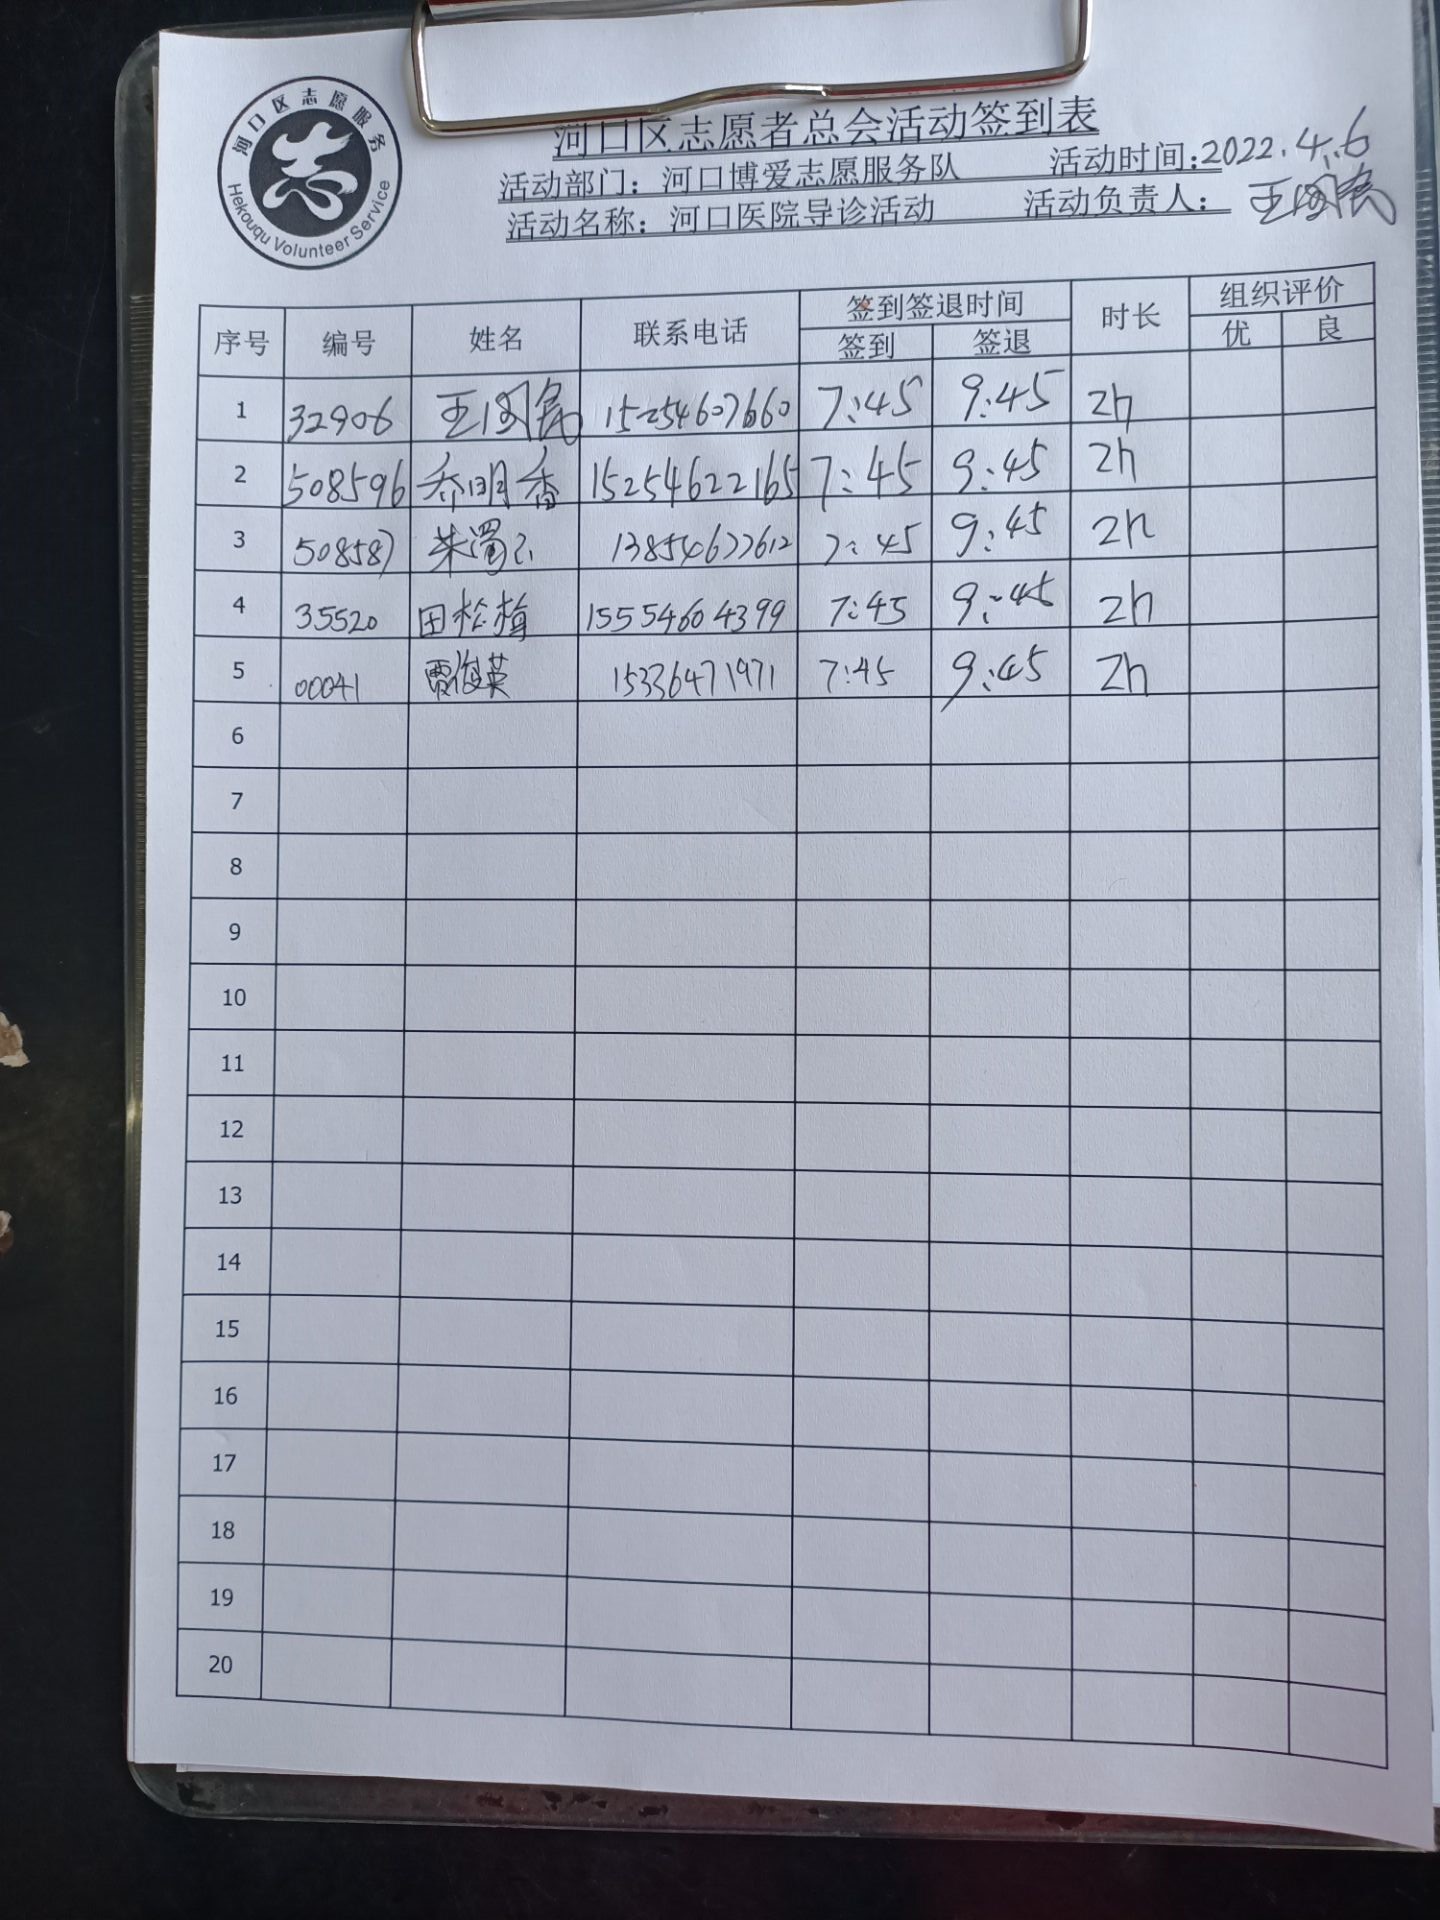 河口区志愿服务
Hekouqu Volunteer Service
河口区志愿者总会活动签到表
活动部门：河口博爱志愿服务队 活动时间：2022.4.6
活动名称：河口医院导诊活动 活动负责人：王国民
序号 编号 姓名 联系电话 签到签退时间 时长 组织评价
签到 签退 优 良
1 32906 王国民 15254607660 7:45 9:45 2h
2 508596 乔明香 15254622165 7:45 9:45 2h
3 508587 朱 13854677612 7:45 9:45 2h
4 35520 田松梅 15554604399 7:45 9:45 2h
5 00041 贾俊英 15336471971 7:45 9:45 2h
6
7
8
9
10
11
12
13
14
15
16
17
18
19
20